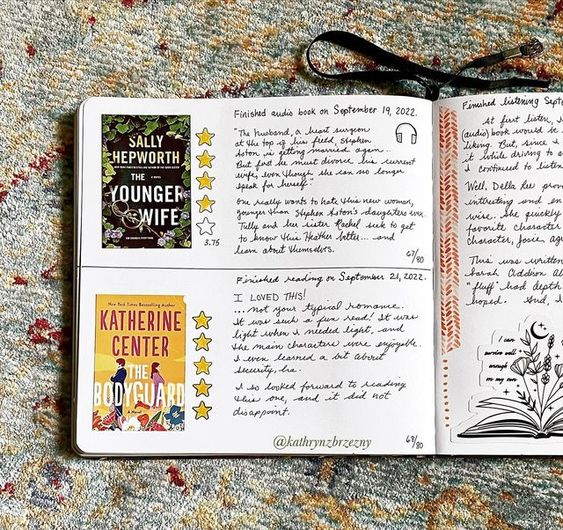 SALLY
HEPWORTH
A NOVEL
THE
YOUNGER
WIFE
3.75
Finished audio book on September 19, 2022.
"The husband, a heart surgeon
at the top of his field, Stephen
Aston is getting married again.
But first he must divorce his current
wife, even though she can no longer
speak for herself."
One really wants to hate this new woman,
younger than Stephen Aston's daughters even.
Tully and her sister Rachel seek to get
to know this Heather better... and
learn about themselves.
67/80
New York Times Bestselling Author
KATHERINE
CENTER
THE
BODYGUARD
A Novel
Finished reading on September 21, 2022.
I LOVED THIS!
... not your typical romance.
It was such a fun read! It was
light when I needed light, and
the main characters were enjoyable.
I even learned a bit about
security, ha.
I so looked forward to reading
this one, and it did not
disappoint.
@kathrynzbrzezny
68/80
Finished listening Sept
At first listen, I
(audio) book would be
liking. But, since I
it while driving to a
I continued to listen
Well, Della Lee prov
intresting and en
wise. She quickly
favorite character
Character, Josie, agre
This was written
Sarah Addison Al
"fluff" had depth
hoped. And, I
I can
survive well
enough
on my own